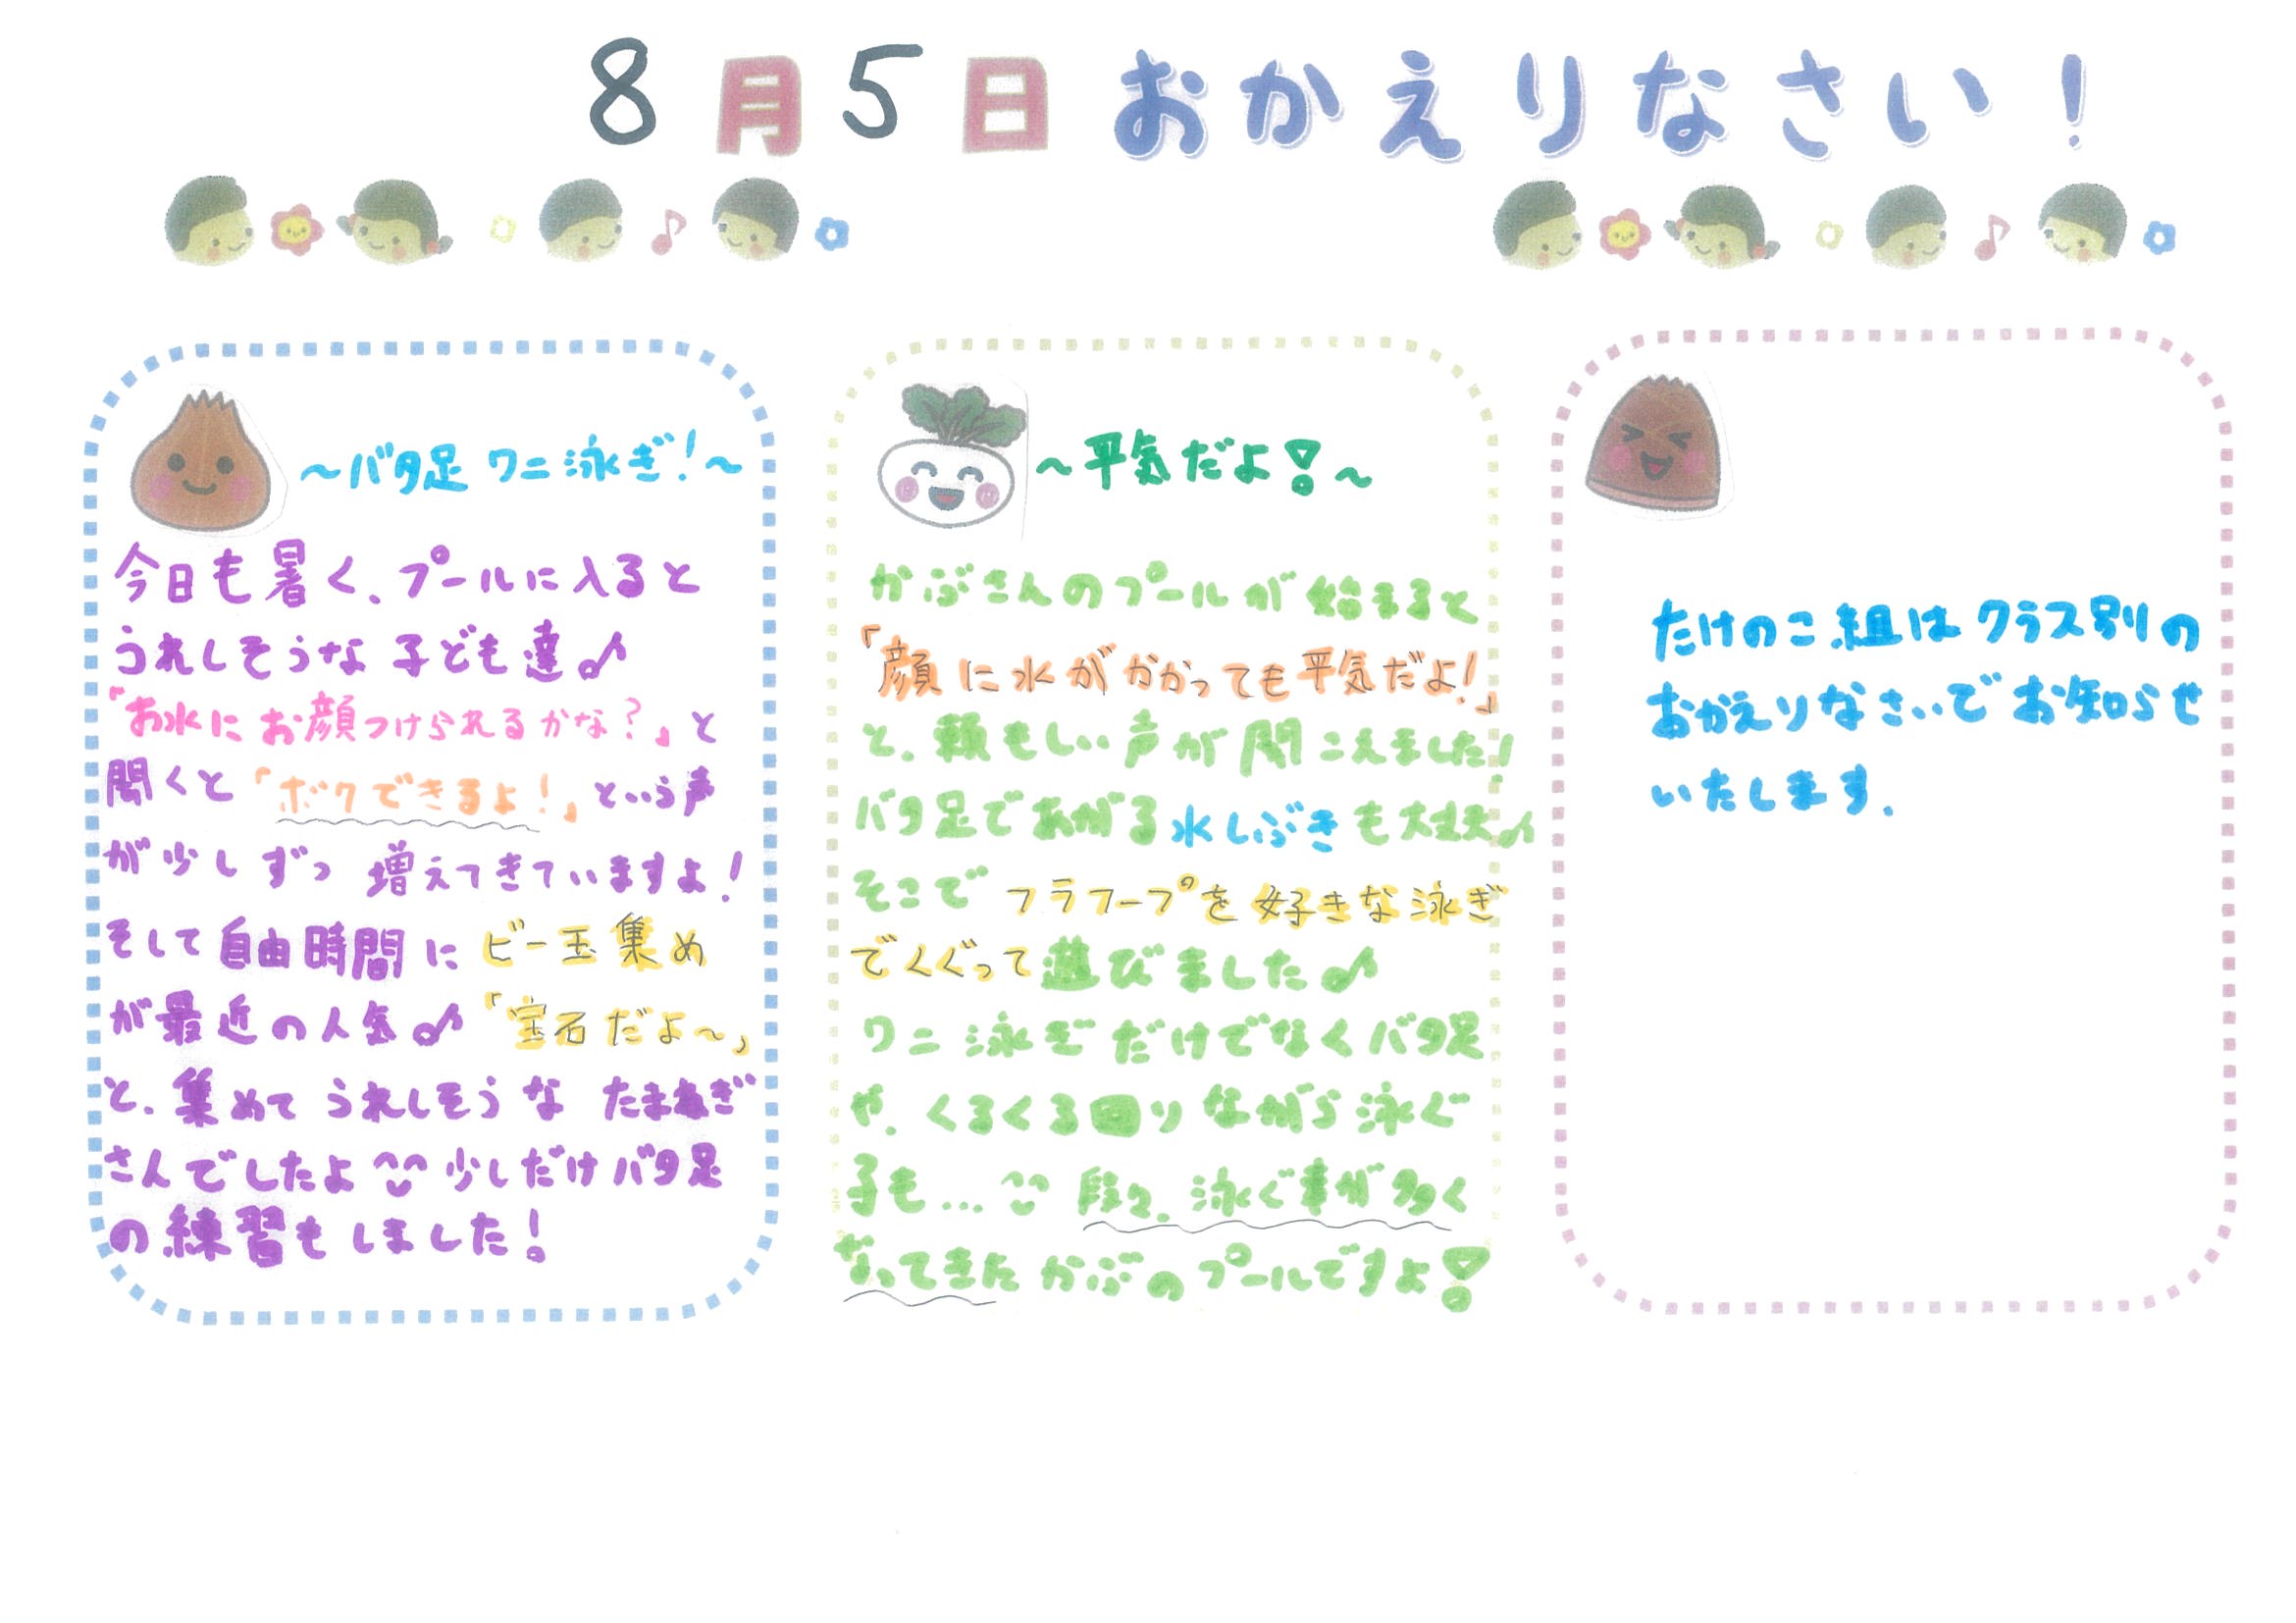 8月5日おかえりなさい!
～バタ足 ワニ泳ぎ!～
今日も暑く、プールに入ると
うれしそうな 子ども達♪
「お水に お顔つけられるかな?」と
聞くと「ボクできるよ!」という声
が少しずつ 増えてきていますよ!
そして自由時間に ビー玉集め
が最近の人気♪「宝石だよ～」
と、集めて うれしそうな たまねぎ
さんでしたよ 少しだけバタ足
の練習もしました!
～平気だよ!～
かぶさんのプールが始まると
「顔に水がかかっても平気だよ!」
と、頼もしい声が聞こえました!
バタ足であがる水しぶきも大丈夫♪
そこで フラフープを好きな泳ぎ
でくぐって遊びました♪
ワニ泳ぎだけでなくバタ足
や、くるくる回りながら泳ぐ
子も… 段々、泳ぐ事が多く
なってきた かぶのプールですよ!
たけのこ組はクラス別の
おかえりなさいでお知らせ
いたします.